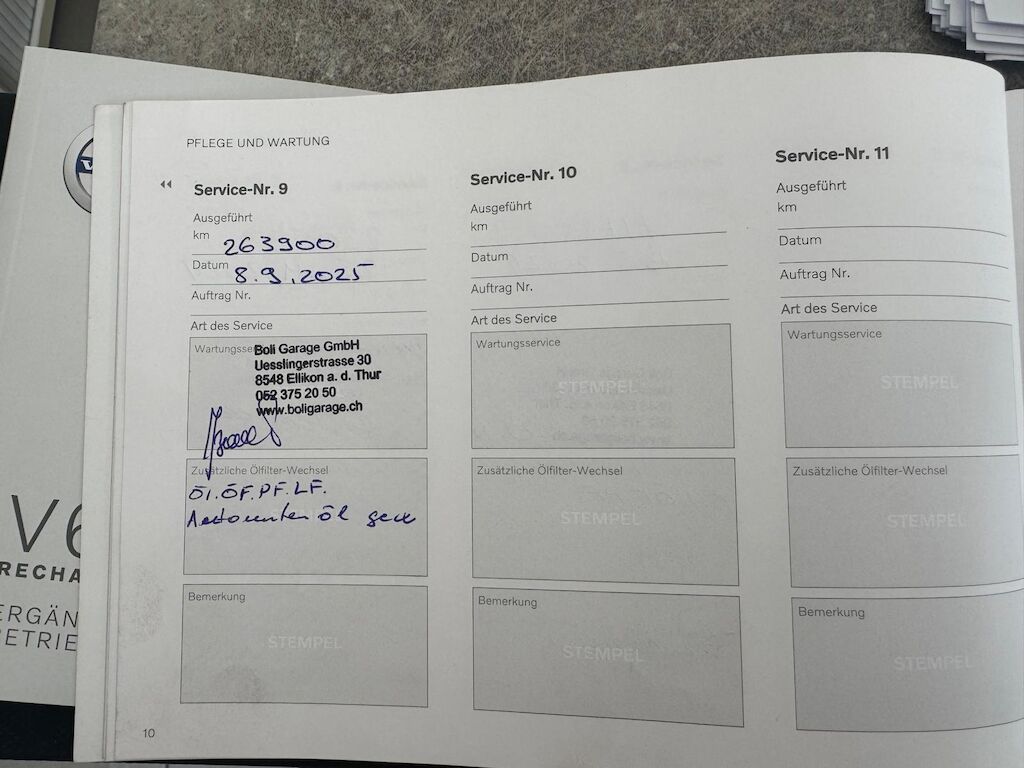 PFLEGE UND WARTUNG
Service-Nr. 9
Ausgeführt
km 263900
Datum 8.9.2025
Auftrag Nr.
Art des Service
Wartungsse
Boli Garage GmbH
Uesslingerstrasse 30
8548 Ellikon a. d. Thur
052 375 20 50
www.boligarage.ch
Zusätzliche Ölfilter-Wechsel
Öl.ÖF.PF.LF.
öl
Bemerkung
STEMPEL
10
Service-Nr. 10
Ausgeführt
km
Datum
Auftrag Nr.
Art des Service
Wartungsservice
STEMPEL
Zusätzliche Ölfilter-Wechsel
STEMPEL
Bemerkung
STEMPEL
Service-Nr. 11
Ausgeführt
km
Datum
Auftrag Nr.
Art des Service
Wartungsservice
STEMPEL
Zusätzliche Ölfilter-Wechsel
STEMPEL
Bemerkung
STEMPEL
V6
RECHA
ERGÄN
BETRIE